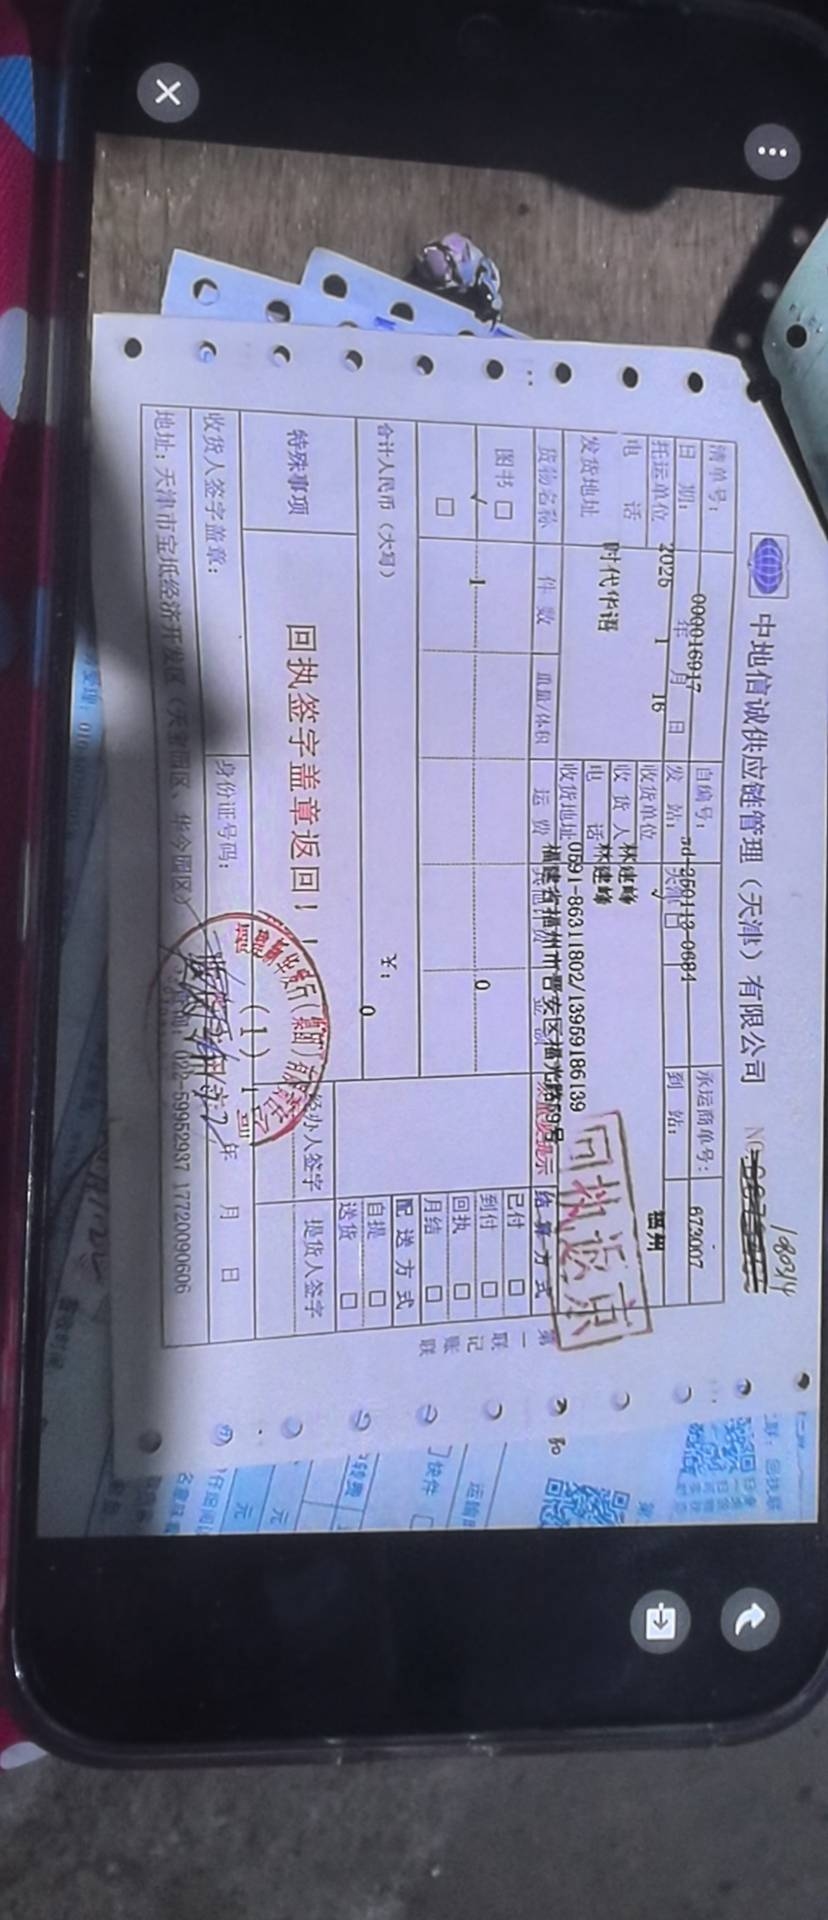 中地信诚供应链管理（天津）有限公司 NO. 180314
清单号： 000016917 自编号： sd-250113-0684 承运商单号： 673007
日 期： 2025 年 1 月 16 日 发 站： 天津 到 站： 福州
托运单位 时代华语 收货单位 林建峰
电 话 收 货 人 林建峰
发货地址 电 话 0591-86311802/13959186139
收货地址 福建省福州市晋安区福光路59号
货物名称 件 数 重量/体积 运 费 结 算 方 式
图书 □ 1 0 已付 □
到付 □
回执 □
月结 □
合计人民币（大写） ￥： 0 配 送 方 式
自提 □
送货 □
特殊事项 回执签字盖章返回！ 经办人签字 提货人签字
收货人签字盖章： 身份证号码： 年 月 日
地址：天津市宝坻经济开发区（天宝园区、华今园区） 022-59952937 17720090606
回执返京
第一联 记账联
（1）
运输
快件 □
元
元